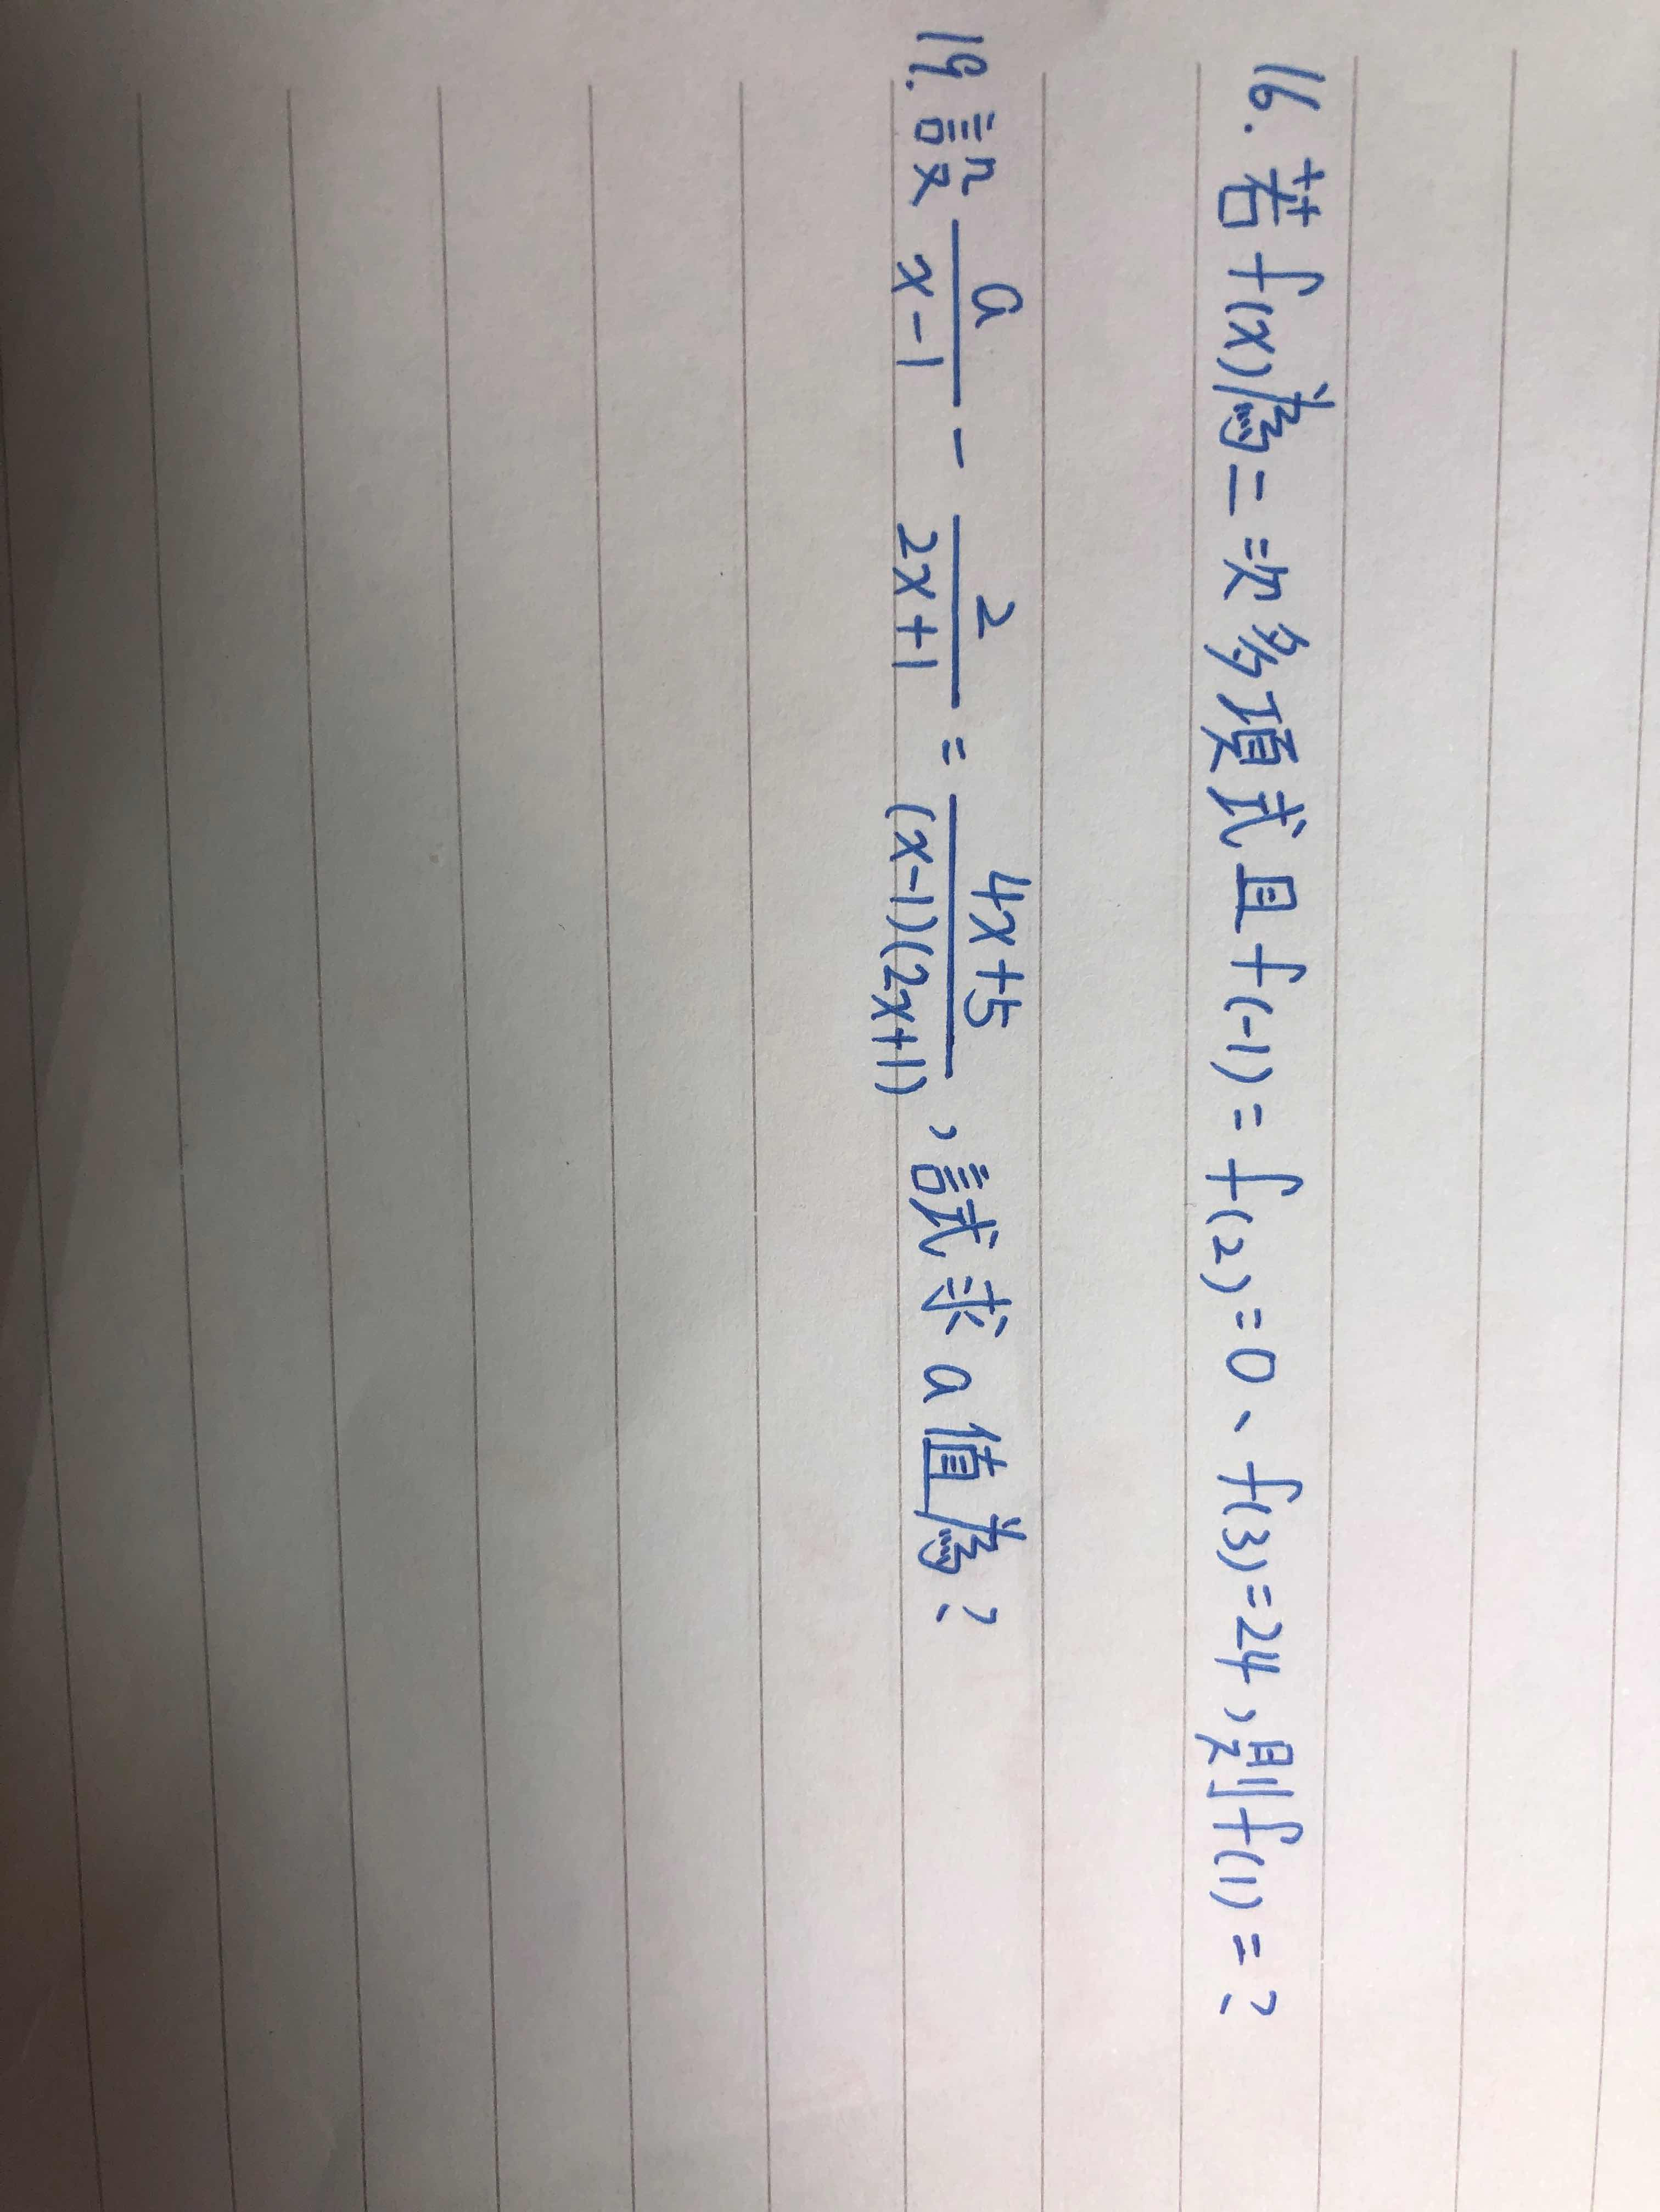 16. 若f(x)為二次多項式且f(-1)=f(2)=0、f(3)=24,則f(1)=?
19. 設 a/(x-1) - 2/(2x+1) = (4x+5)/((x-1)(2x+1)),試求a值為?